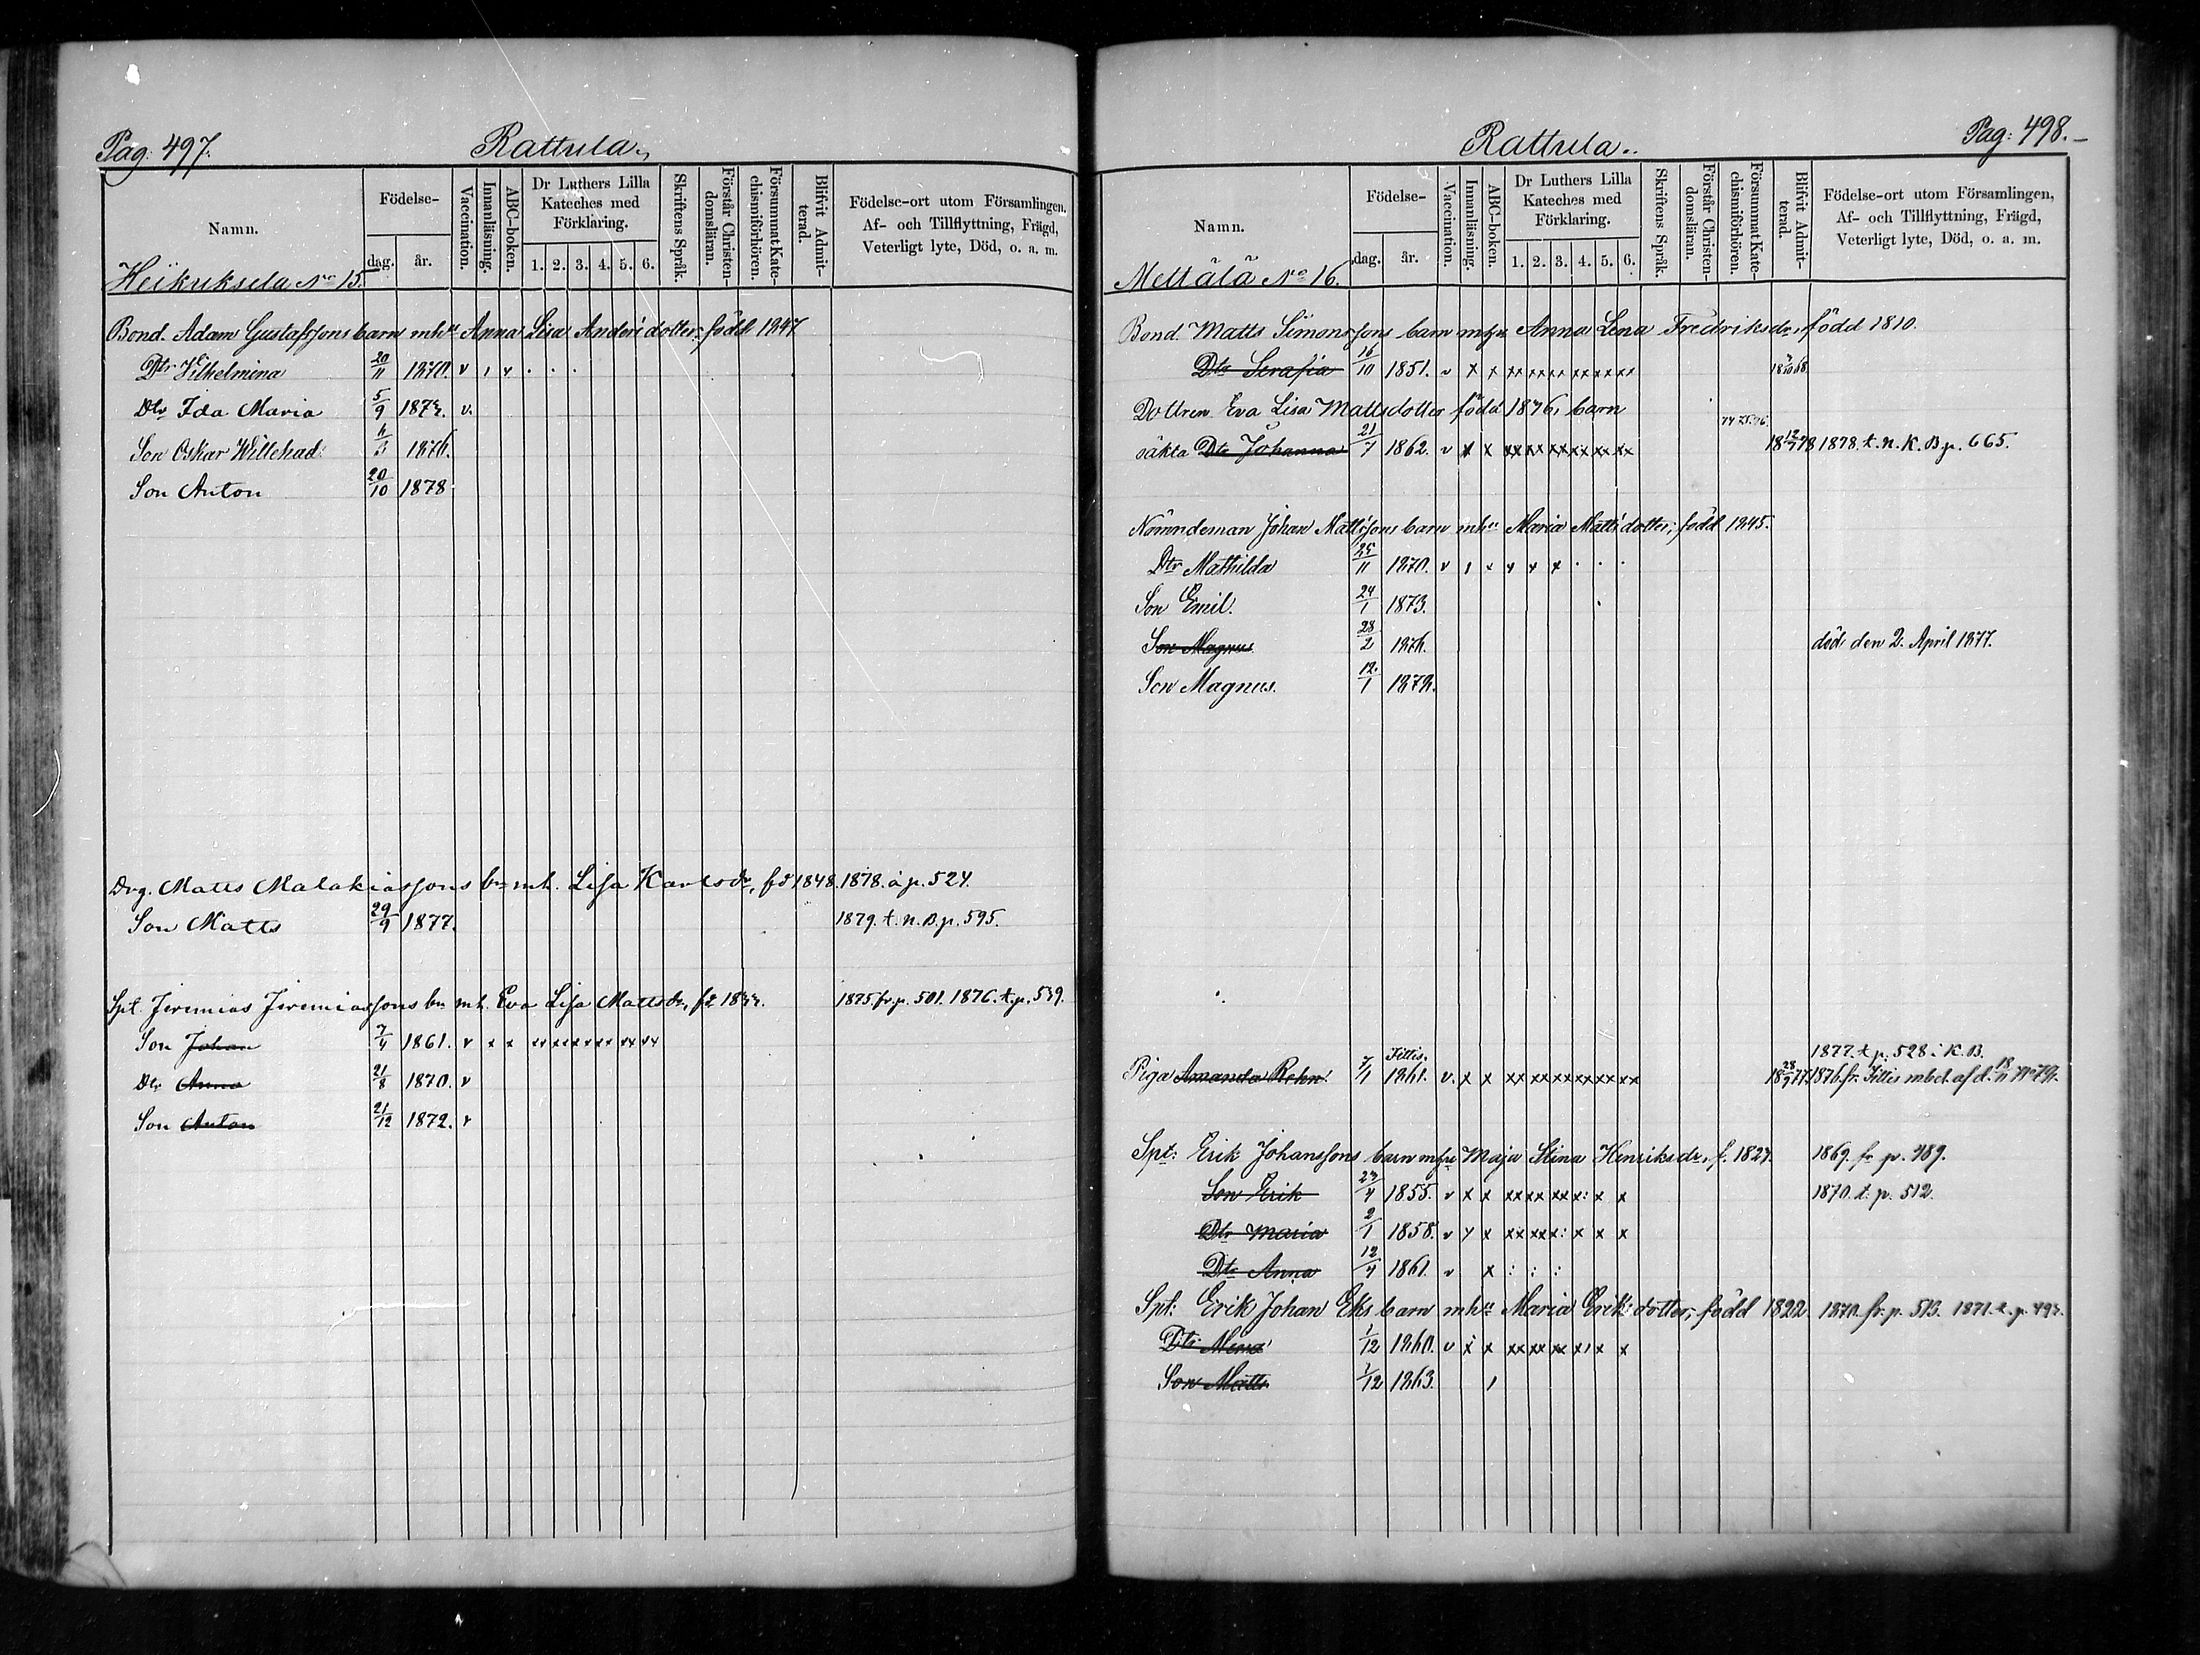 Pag. 497. Rattula.
Namn. Födelse- dag. år. Vaccination. Innanläsning. ABC-boken. Dr Luthers Lilla Kateches med Förklaring. 1. 2. 3. 4. 5. 6. Skriftens Språk. Förstår Christendomsläran. Försummat Katechismiförhören. Blifvit Admitterad. Födelse-ort utom Församlingen, Af- och Tillflyttning, Frägd, Veterligt lyte, Död, o. a. m.
Heikuksela No 15.
Bond. Adam Gustafssons barn mh: Anna Lisa Anders dotter, född 1847
Dtr Vilhelmina 20/11 1870. v
Dtr Ida Maria 5/9 v.
Son Oskar Willehad 1876.
Son Anton 20/10 1878
Drg. Matts Malakiassons bn mh. Lisa Karlsdr, fd 1848. 1878. å p. 524.
Son Matts 29/9 1877. 1879. t. n. B. p. 595.
Spt. Jeremias Jeremiassons bn mh. Eva Lisa Mattsdr, fd 1875 fr. p. 501. 1876. t. p. 539.
Son Johan 7/4 1861. v x x xx xx xx xx xx xx
Dtr Anna 21/8 1870. v
Son Anton 21/12 1872. v
Rattula. Pag: 498.
Namn. Födelse- dag. år. Vaccination. Innanläsning. ABC-boken. Dr Luthers Lilla Kateches med Förklaring. 1. 2. 3. 4. 5. 6. Skriftens Språk. Förstår Christendomsläran. Försummat Katechismiförhören. Blifvit Admitterad. Födelse-ort utom Församlingen, Af- och Tillflyttning, Frägd, Veterligt lyte, Död, o. a. m.
Mellälä No 16.
Bond. Matts Simonssons barn m hu Anna Lena Fredriksdr, född 1810.
Dtr Serafia 16/10 1851. v x x xx xx xx xx xx xx
Dottren Eva Lisa Mattsdotter född barn
oäkta Dtr Johanna 21/7 1862. v x x xx xx xx xx xx xx 1878. t. n. K. B. p. 665.
Nämndeman Johan Mattssons barn mh: Maria Matts dotter, född 1845.
Dtr Mathilda 25/11 1870. v
Son Emil. 24/1 1873.
Son Magnus 28/2 1876. död den 2. April 1877.
Son Magnus. 12/1
1877. t. p. 528 i K. B.
Piga Amanda Rehn Tittis. 1861. v. x x xx xx xx xx xx xx 1876. fr. Tittis mbet. af d.
Spt: Erik Johanssons barn m hu Maja Stina Henriksdr, f. 1827. 1869. fr p. 489.
Son Erik 1855. v x x xx xx xx x: x x 1870. t. p. 512.
Dtr Maria 2/1 1858. v x x xx xx x: x x x
Dtr Anna 12/4 1861. v x : : :
Spt: Erik Johan Eks barn mh: Maria Eriks dotter, född 1822. 1870. fr. p. 513. 1871. t. p.
Dtr 1/12 1860. v x x xx xx xx x x x
Son Matts 1/12 1863.